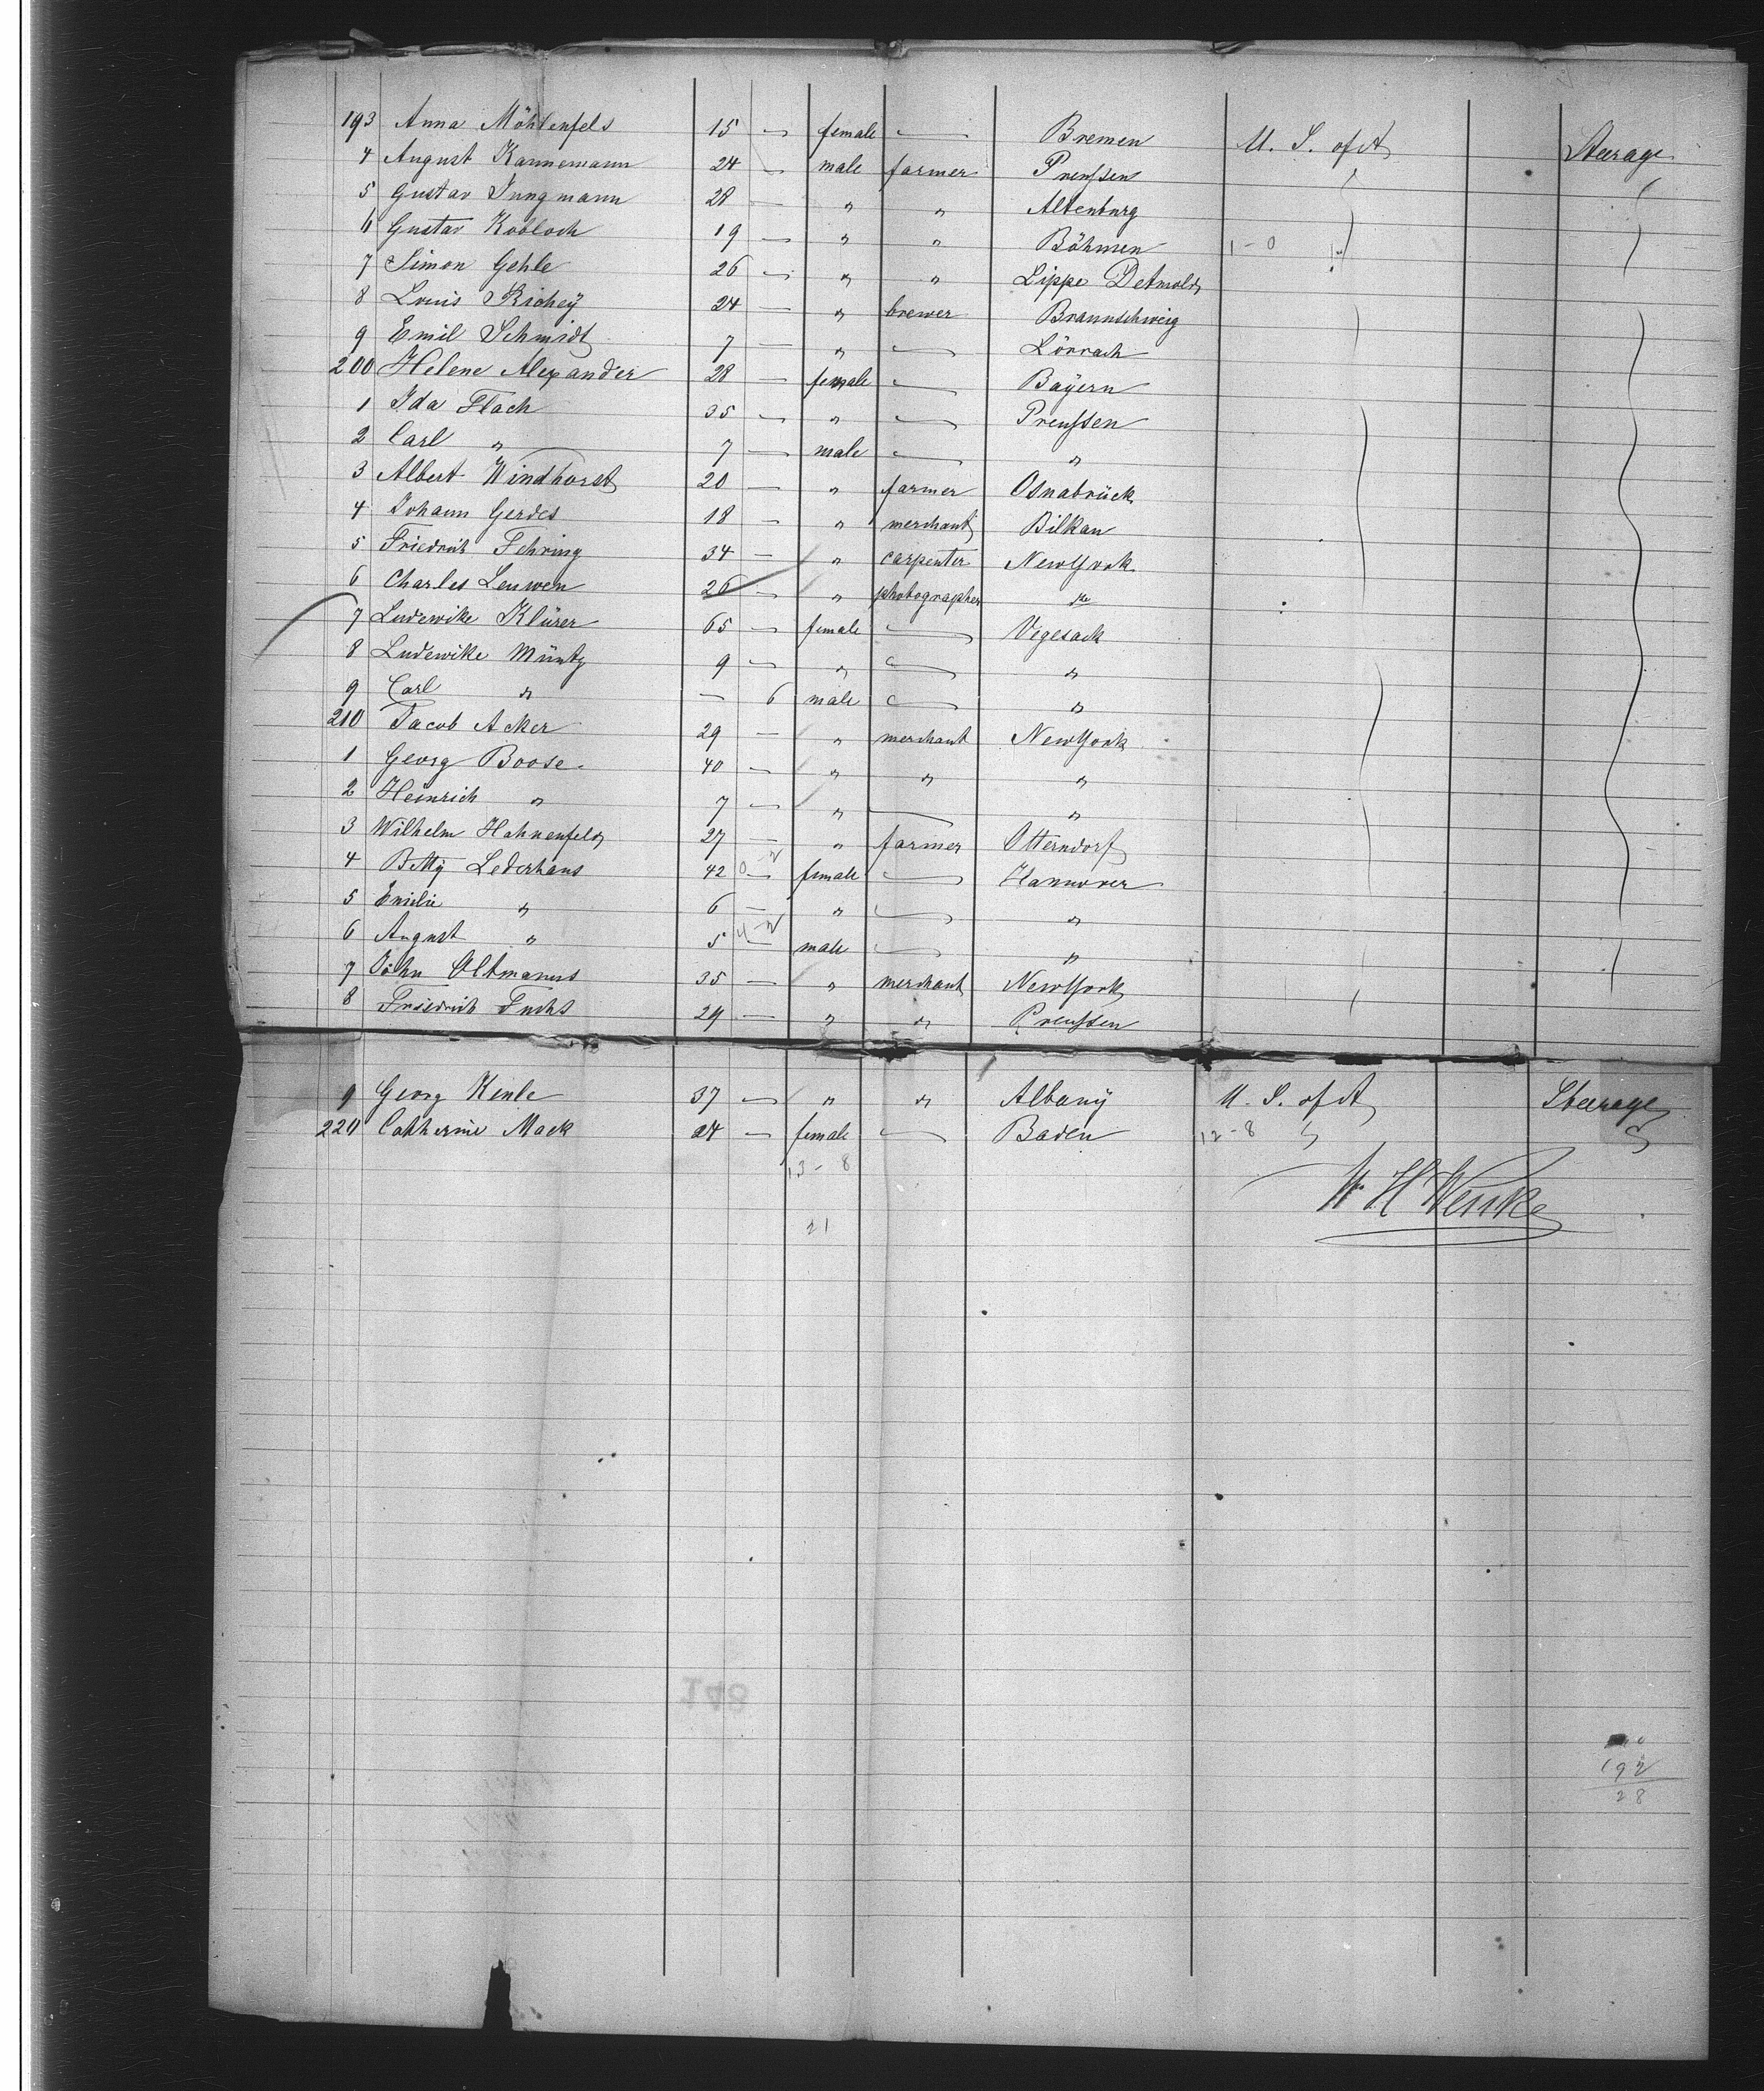 193 Anna Möhlenfels 15 — female — Bremen U. S. of A Steerage
4 August Kannemann 24 — male farmer Preußen
5 Gustav Jungmann 28 — " " Altenburg
6 Gustav Kobloch 19 — " " Böhmen 1-0
7 Simon Gehle 26 — " " Lippe Detmold
8 Louis Richey 24 — " brewer Braunschweig
9 Emil Schmidt 7 — " — Lörrach
200 Helene Alexander 28 — female — Bayern
1 Ida Flach 35 — " — Preußen
2 Carl " 7 — male — "
3 Albert Windhorst 20 — " farmer Osnabrück
4 Johann Gerdes 18 — " merchant Bilkau
5 Friedrich Fehring 34 — " carpenter New York
6 Charles Leuwen 26 — " photographer "
7 Ludewike Klürer 65 — female — Vegesack
8 Ludewike Müntz 9 — " — "
9 Carl " — 6 male — "
210 Jacob Acker 29 — " merchant New York
1 Georg Boose 40 — " " "
2 Heinrich " 7 — " — "
3 Wilhelm Hahnenfeld 27 — " farmer Otterndorf
4 Betty Lederhaus 42 — female — Hannover
5 Emilie " 6 — " — "
6 August " 5 — male — "
7 John Oltmanns 35 — " merchant New York
8 Friedrich Fuchs 29 — " " Preußen
9 Georg Kenle 37 — " " Albany U. S. of A Steerage
220 Catherine Mack 24 — female — Baden 12-8
13-8
W. H. Wenke
21
148
192
28